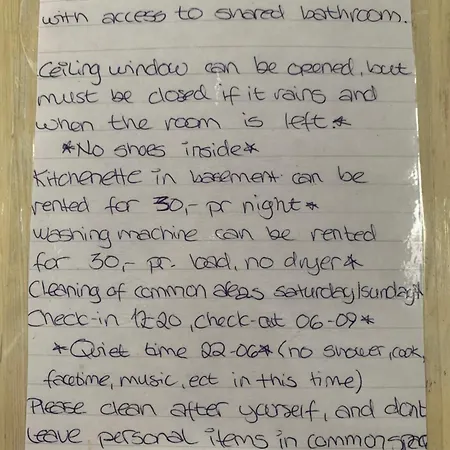 with access to shared bathroom.
Ceiling window can be opened, but
must be closed if it rains and
when the room is left.*
*No shoes inside*
Kitchenette in basement can be
rented for 30,- pr night*
Washing machine can be rented
for 30,- pr. load, no dryer*
Cleaning of common areas saturday/sunday*
Check-in 17-20, check-out 06-09*
*Quiet time 22-06* (no shower, cook,
facetime, music, ect in this time)
Please clean after yourself, and dont
leave personal items in common